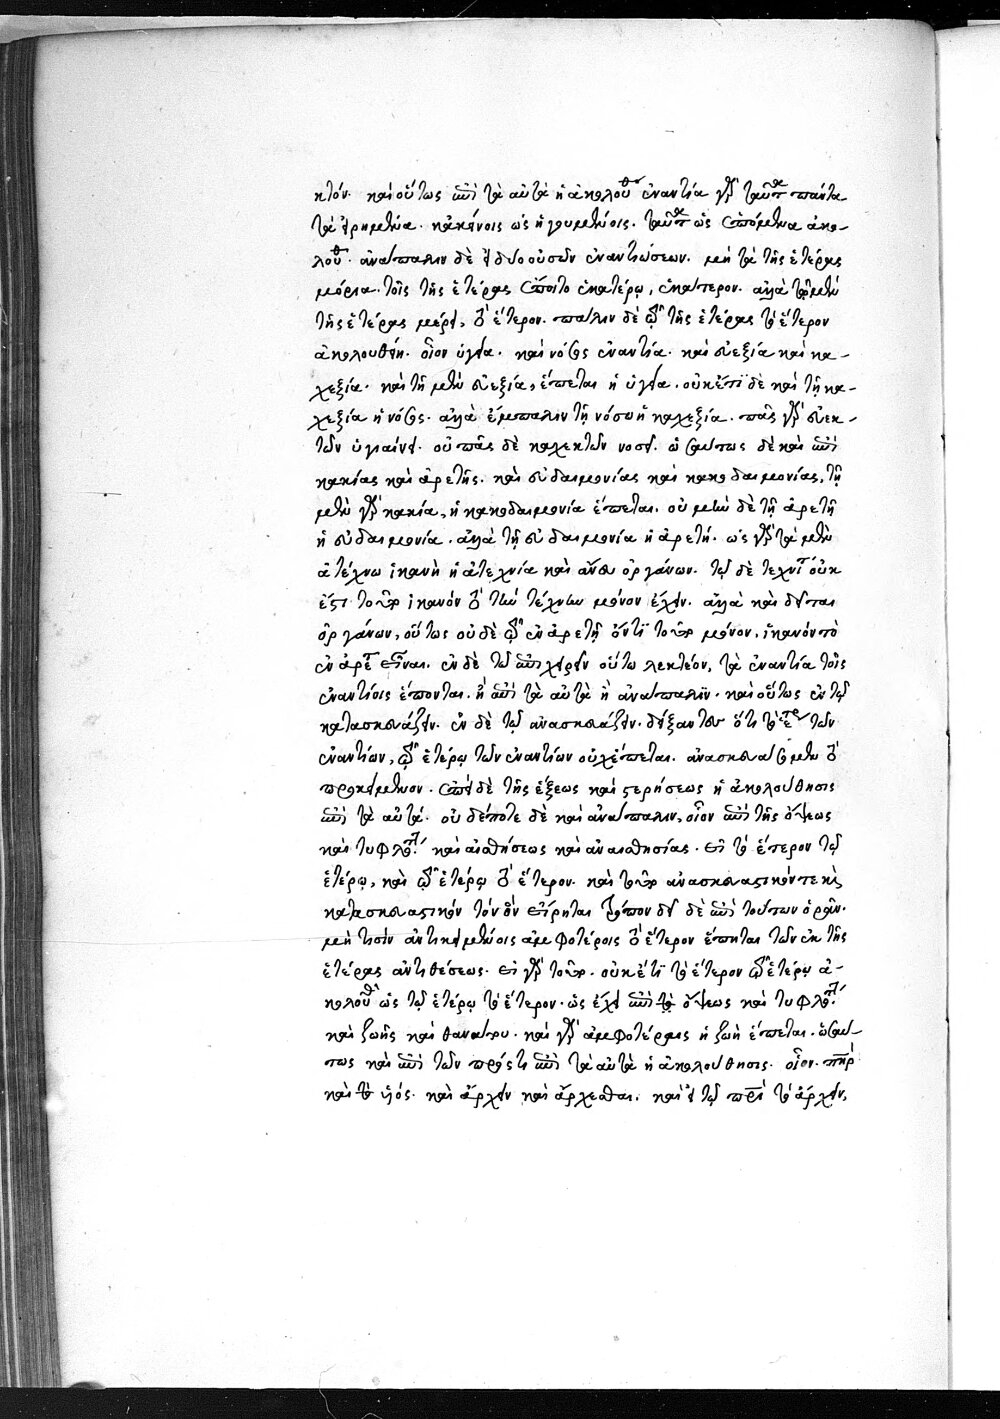 κτόν. καὶ οὕτως ἐπὶ τὰ αὐτὰ ἡ ἀκολουθ ἐναντία γὰρ ταῦτα πάντα
τὰ εἰρημένα. κἀκείνοις ὡς ἡγουμένοις. ταῦτα ὡς ἑπόμενα ἀκο-
λουθ. ἀνάπαλιν δὲ εἰ δύο οὐσῶν ἐναντιώσεων. μὴ τὰ τῆς ἑτέρας
μόρια. τοῖς τῆς ἑτέρας ἕποιτο ἑκατέρω, ἑκάτερον. ἀλλὰ τῶ μὲν
τῆς ἑτέρας μέρει, τὸ ἕτερον. πάλιν δὲ τῶ τῆς ἑτέρας τὸ ἕτερον
ἀκολουθεῖν. οἷον ὑγεία. καὶ νόσος ἐναντία. καὶ εὐεξία καὶ κα-
χεξία. καὶ τῇ μὲν εὐεξία, ἕπεται ἡ ὑγεία. οὐκέτι δὲ καὶ τῇ κα-
χεξία ἡ νόσος. ἀλλὰ ἔμπαλιν τῇ νόσω ἡ καχεξία. πᾶς γὰρ εὐεκ-
τῶν ὑγιαίνει. οὐ πᾶς δὲ καχεκτῶν νοσεῖ. ὡσαύτως δὲ καὶ ἐπὶ
κακίας καὶ ἀρετῆς. καὶ εὐδαιμονίας καὶ κακοδαιμονίας, τῇ
μὲν γὰρ κακία, ἡ κακοδαιμονία ἕπεται. οὐ μὴν δὲ τῇ ἀρετῇ
ἡ εὐδαιμονία. ἀλλὰ τῇ εὐδαιμονία ἡ ἀρετή. ὡς γὰρ τὰ μὲν
ἀτέχνω ἱκανὴ ἡ ἀτεχνία καὶ ἄνευ ὀργάνων. τῷ δὲ τεχνίτ οὐκ
ἔστι τοῦτο ἱκανὸν τὸ τὴν τέχνην μόνον ἔχειν. ἀλλὰ καὶ δεῖται
ὀργάνων, οὕτως οὐδὲ τῶ ἐν ἀρετῇ ὄντι τοῦτο μόνον, ἱκανὸν τὸ
ἐν ἀρετ εἶναι. ἐν δὲ τῶ ἐπιχειρεῖν οὕτω λεκτέον, τὰ ἐναντία τοῖς
ἐναντίοις ἕπονται. ἢ ἐπὶ τὰ αὐτὰ ἢ ἀνάπαλιν. καὶ οὕτως ἐν τῷ
κατασκευάζειν. ἐν δὲ τῷ ἀνασκευάζειν. δείξαντες ὅτι τὸ ἕτερον τῶν
ἐναντίων, τῶ ἑτέρῳ τῶν ἐναντίων οὐχ ἕπεται. ἀνασκευάσομεν τὸ
προκείμενον. ἐπεὶ δὲ τῆς ἕξεως καὶ στερήσεως ἡ ἀκολούθησις
ἐπὶ τὰ αὐτά. οὐδέποτε δὲ καὶ ἀνάπαλιν, οἷον ἐπὶ τῆς ὄψεως
καὶ τυφλότητ καὶ αἰσθήσεως καὶ ἀναισθησίας. εἰ τὸ ἕτερον τῷ
ἑτέρῳ, καὶ τῶ ἑτέρῳ τὸ ἕτερον. καὶ τοῦτο ἀνασκευαστικόν τε καὶ
κατασκευαστικόν τὸν ὃν εἴρηται τρόπον δεῖ δὲ ἐπὶ τούτων ὁρᾶν.
μή τισιν ἀντικειμένοις ἀμφοτέροις τὸ ἕτερον ἕπηται τῶν ἐκ τῆς
ἑτέρας ἀντιθέσεως. εἰ γὰρ τοῦτο. οὐκέτι τὸ ἕτερον τῶ ἑτέρῳ ἀ-
κολουθ ὡς τῷ ἑτέρῳ τὸ ἕτερον. ὡς ἔχει ἐπὶ τῆς ὄψεως καὶ τυφλότητ
καὶ ζωῆς καὶ θανάτου. καὶ γὰρ ἀμφοτέραις ἡ ζωὴ ἕπεται. ὡσαύ-
τως καὶ ἐπὶ τῶν πρός τι ἐπὶ τὰ αὐτὰ ἡ ἀκολούθησις. οἷον. πηρ
καὶ τὸ υἱός. καὶ ἄρχειν καὶ ἄρχεσθαι. καὶ εἰ τῷ πρι τὸ ἄρχειν,